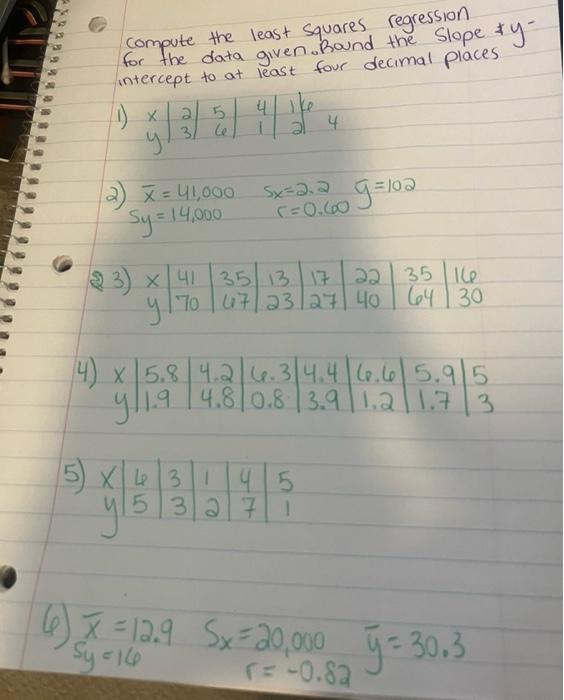 Compute the least squares regression
for the data given. Round the Slope & y-
intercept to at least four decimal places
1) x | 2 | 5 | 4 | 1
y | 3 | 6 | 1 | 2 4
2) x̄ = 41,000 Sx=2.2 ȳ=102
Sy=14,000 r=0.600
3) x | 41 | 35 | 13 | 17 | 22 | 35 | 16
y | 70 | 67 | 23 | 27 | 40 | 64 | 30
4) x | 5.8 | 4.2 | 6.3 | 4.4 | 6.6 | 5.9 | 5
y | 1.9 | 4.8 | 0.8 | 3.9 | 1.2 | 1.7 | 3
5) x | 6 | 3 | 1 | 4 | 5
y | 5 | 3 | 2 | 7 | 1
6) x̄ = 12.9 Sx=20,000 ȳ = 30.3
Sy=16 r= -0.82